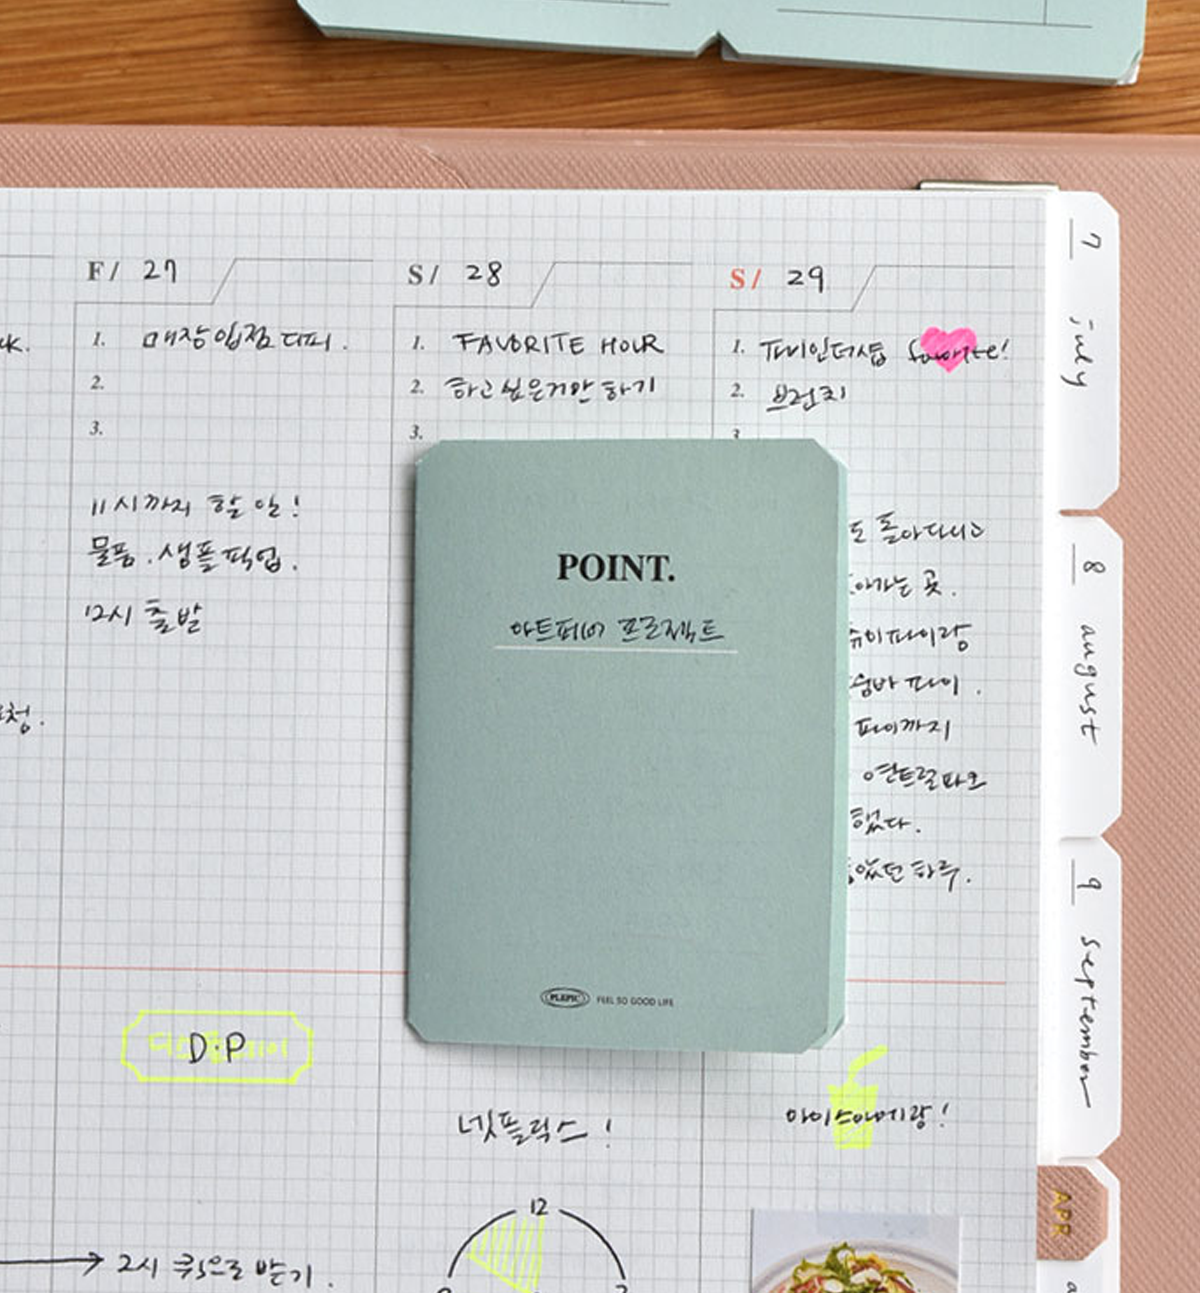 F/ 27
1. 매장입점 디피.
2.
3.
11시까지 할 일!
물품. 샘플픽업.
12시 출발
D·P
2시 퀵으로 받기.
S/ 28
1. FAVORITE HOUR
2. 하고싶은거만 하기
3.
넷플릭스!
12
S/ 29
1. 파이인더샵 favorite!
2. 브런치
3
도 돌아다니고
아가는 곳.
파이랑
파이.
파이까지
했다.
하루.
아이스아메랑!
POINT.
아트페어 프로젝트
PLEPIC FEEL SO GOOD LIFE
7 july
8 august
9 september
APR